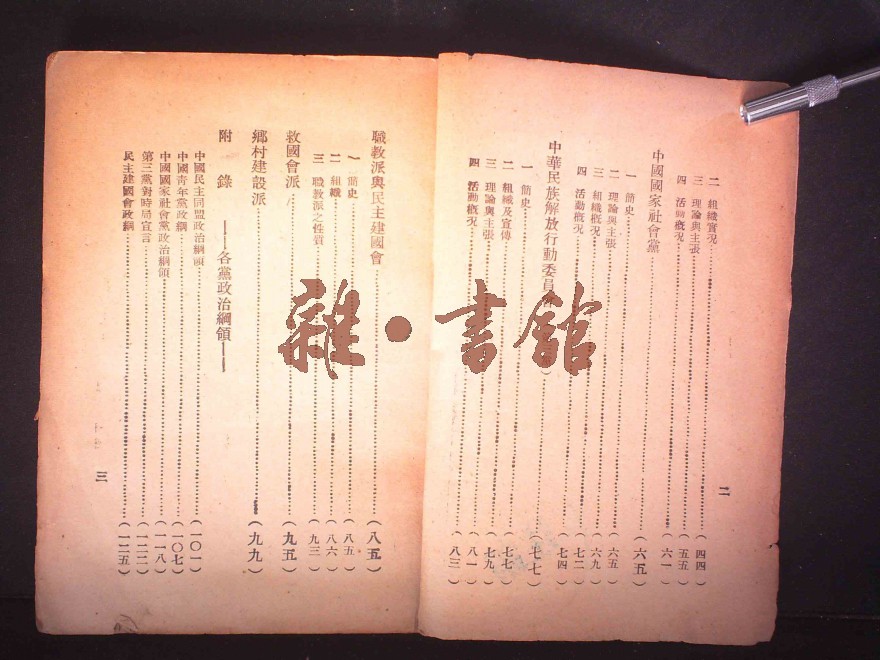 二 組織實況……(四四)
三 理論與主張……(五五)
四 活動概況……(六一)
中國國家社會黨……(六五)
一 簡史……(六五)
二 理論與主張……(六九)
三 組織概況……(七二)
四 活動概況……(七四)
中華民族解放行動委員……(七七)
一 簡史……(七七)
二 組織及宣傳……(七九)
三 理論與主張……(八一)
四 活動概況……(八三)
二
職教派與民主建國會……(八五)
一 簡史……(八五)
二 組織……(八六)
三 職教派之性質……(九三)
救國會派……(九五)
鄉村建設派……(九九)
附錄 ——各黨政治綱領——
中國民主同盟政治綱領……(一〇一)
中國青年黨政綱……(一〇七)
中國國家社會黨政治綱領……(一一八)
第三黨對時局宣言……(一二二)
民主建國會政綱……(一二五)
三
雜·書館